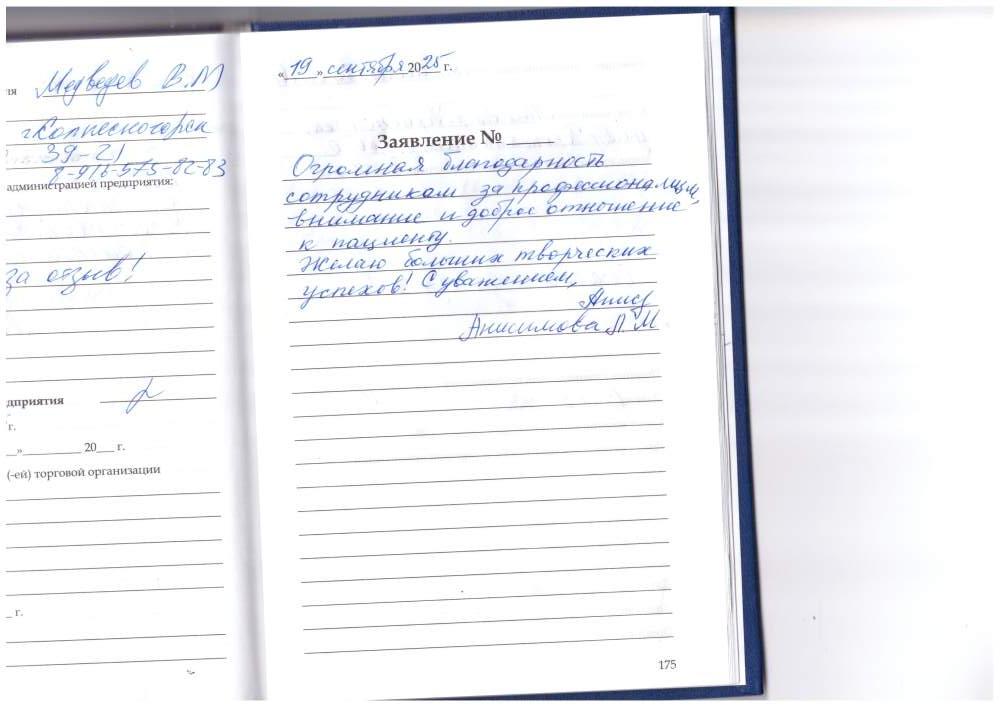 ия Медведев В.М
г. Солнесногорск
39-21
8-916-575-82-83
администрацией предприятия:
за отзыв!
дприятия
г.
» 20 г.
(-ей) торговой организации
г.
« 19 » сентября 2025 г.
Заявление №
Огромная благодарность
сотрудникам за профессионализм,
внимание и доброе отношение
к пациенту.
Желаю больших творческих
успехов! С уважением,
Анисимова Л.М
175